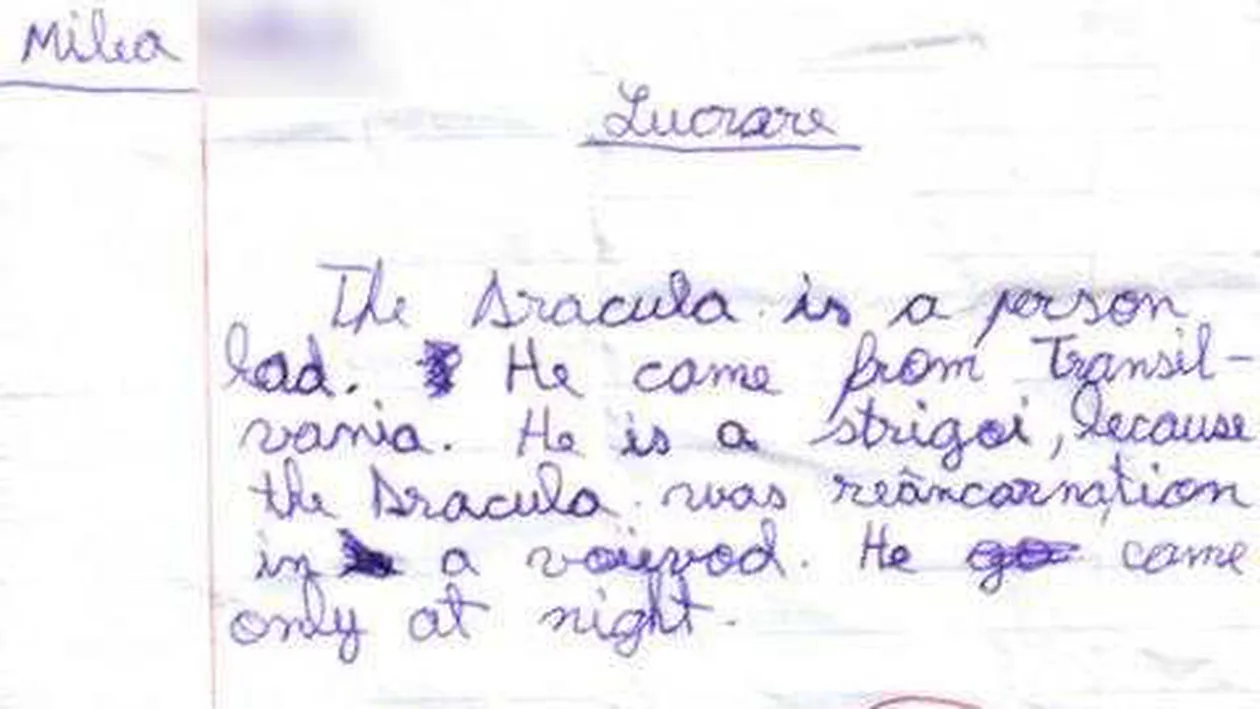 Milea
Lucrare
The Dracula is a person
bad. He came from Transil-
vania. He is a strigoi, because
the Dracula was reâncarnation
in a voievod. He go came
only at night.